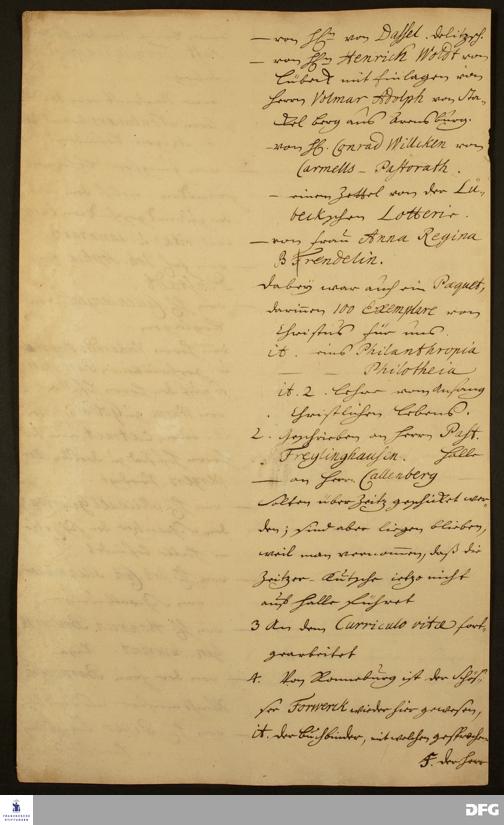 — von H. von Dassel. Delitzsch.
— von Hn Henrich Woldt von
Lübeck mit Einlagen von
Herrn Volmar Adolph von Sta-
kel berg aus Arensburg.
— von H. Conrad Willcken von
Carmells - Pastorath.
— einen Zettel von der Lü-
beckschen Lotterie.
— von Frau Anna Regina
Frendelin.
Dabey war auch ein Paquet,
darinnen 100 Exemplare von
Christus für uns.
it. eins Philanthropia
— — Philotheia
it. 2. Lehre vom Anfang
Christlichen Lebens.
2. Geschrieben an Herrn Past.
Freylinghausen. Halle
— an Herrn Callenberg
solten über Zeitz geschicket wer-
den; sind aber liegen blieben,
weil man vernommen, daß die
Zeitzer-Kutsche ietzo nicht
auf Halle führet
3 An dem Curriculo vitæ fort-
gearbeitet
4. Von Ronneburg ist der Schös-
ser Forwerck wieder hier gewesen,
it. der Buchbinder, mit welchen gesprochen
5. der Herr
FRANCKESCHE STIFTUNGEN
DFG